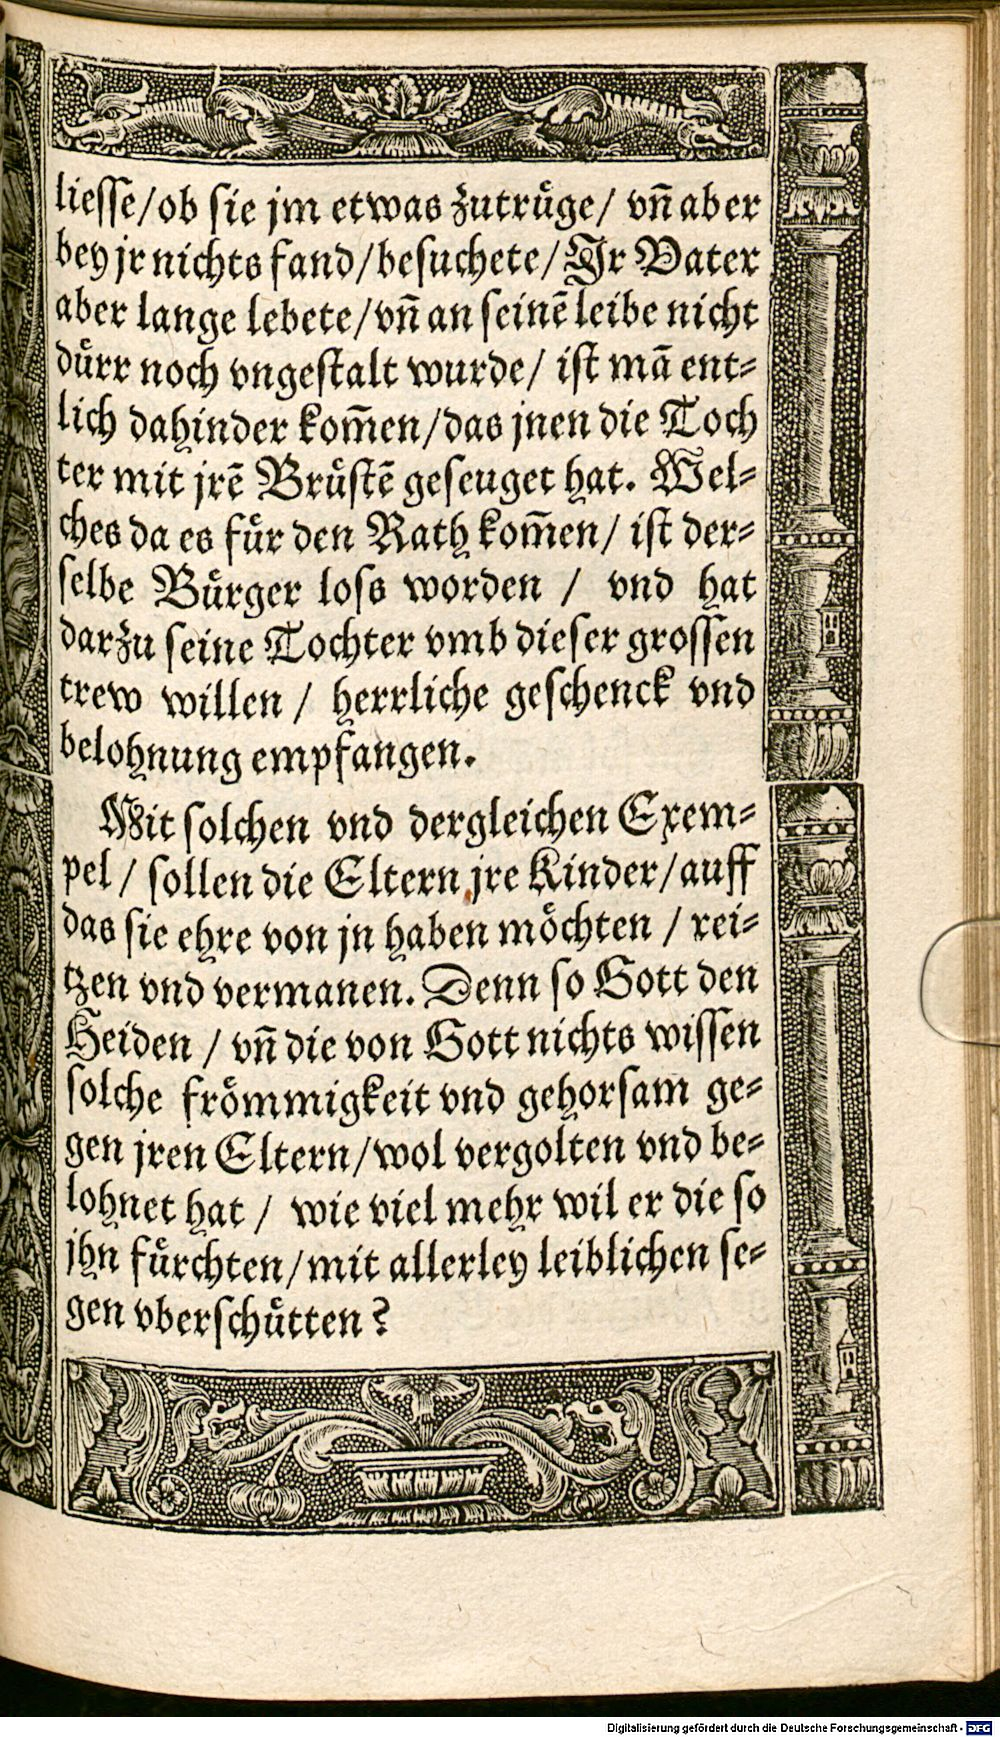 liesse/ob sie jm etwas zutruͤge/ vn̄ aber
bey jr nichts fand/besuchete/Ir Vater
aber lange lebete/vn̄ an seinē leibe nicht
duͤrr noch vngestalt wurde/ ist mā ent⸗
lich dahinder kom̄en/das jnen die Toch
ter mit jrē Bruͤstē geseuget hat. Wel⸗
ches da es fuͤr den Rath kom̄en/ ist der⸗
selbe Buͤrger loss worden / vnd hat
darzu seine Tochter vmb dieser grossen
trew willen / herrliche geschenck vnd
belohnung empfangen.
Mit solchen vnd dergleichen Exem⸗
pel/ sollen die Eltern jre Kinder/auff
das sie ehre von jn haben moͤchten / rei⸗
tzen vnd vermanen. Denn so Gott den
Heiden / vn̄ die von Gott nichts wissen
solche froͤmmigkeit vnd gehorsam ge⸗
gen jren Eltern/wol vergolten vnd be⸗
lohnet hat / wie viel mehr wil er die so
jhn fuͤrchten/mit allerley leiblichen se⸗
gen vberschuͤtten?
Digitalisierung gefördert durch die Deutsche Forschungsgemeinschaft - DFG